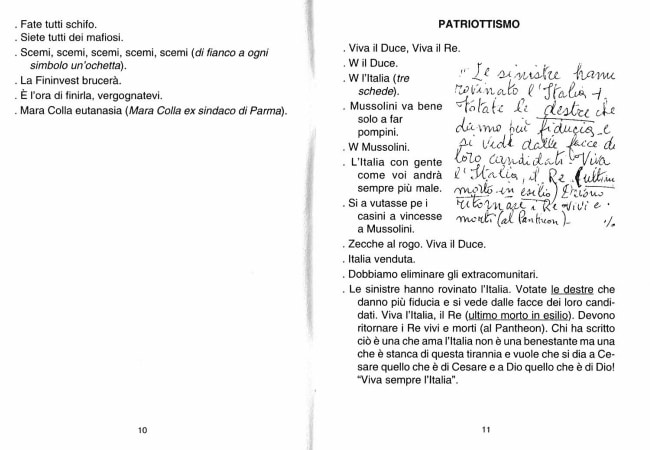 . Fate tutti schifo.
. Siete tutti dei mafiosi.
. Scemi, scemi, scemi, scemi, scemi (di fianco a ogni
simbolo un'ochetta).
. La Fininvest brucerà.
. È l'ora di finirla, vergognatevi.
. Mara Colla eutanasia (Mara Colla ex sindaco di Parma).
10
PATRIOTTISMO
. Viva il Duce, Viva il Re.
. W il Duce.
. W l'Italia (tre
schede).
. Mussolini va bene
solo a far
pompini.
. W Mussolini.
. L'Italia con gente
come voi andrà
sempre più male.
. Si a vutasse pe i
casini a vincesse
a Mussolini.
"Le sinistre hanno
rovinato l'Italia
Votate le destre che
danno più fiducia e
si vede dalle facce di
loro candidati. Viva
l'Italia, il Re (ultimo
morto in esilio) Devono
ritornare i Re vivi e
morti (al Pantheon)
. Zecche al rogo. Viva il Duce.
. Italia venduta.
. Dobbiamo eliminare gli extracomunitari.
. Le sinistre hanno rovinato l'Italia. Votate le destre che
danno più fiducia e si vede dalle facce dei loro candi-
dati. Viva l'Italia, il Re (ultimo morto in esilio). Devono
ritornare i Re vivi e morti (al Pantheon). Chi ha scritto
ciò è una che ama l'Italia non è una benestante ma una
che è stanca di questa tirannia e vuole che si dia a Ce-
sare quello che è di Cesare e a Dio quello che è di Dio!
"Viva sempre l'Italia".
11